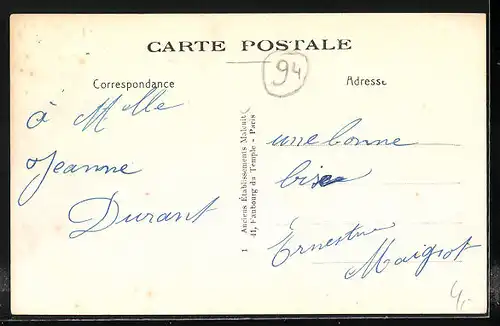 CARTE POSTALE
94
Correspondance
Adresse
à Mlle
Jeanne
Durant
1 Anciens Établissements Malcuit
41, Faubourg du Temple - Paris
une bonne
bise
Ernestine
Maigrot